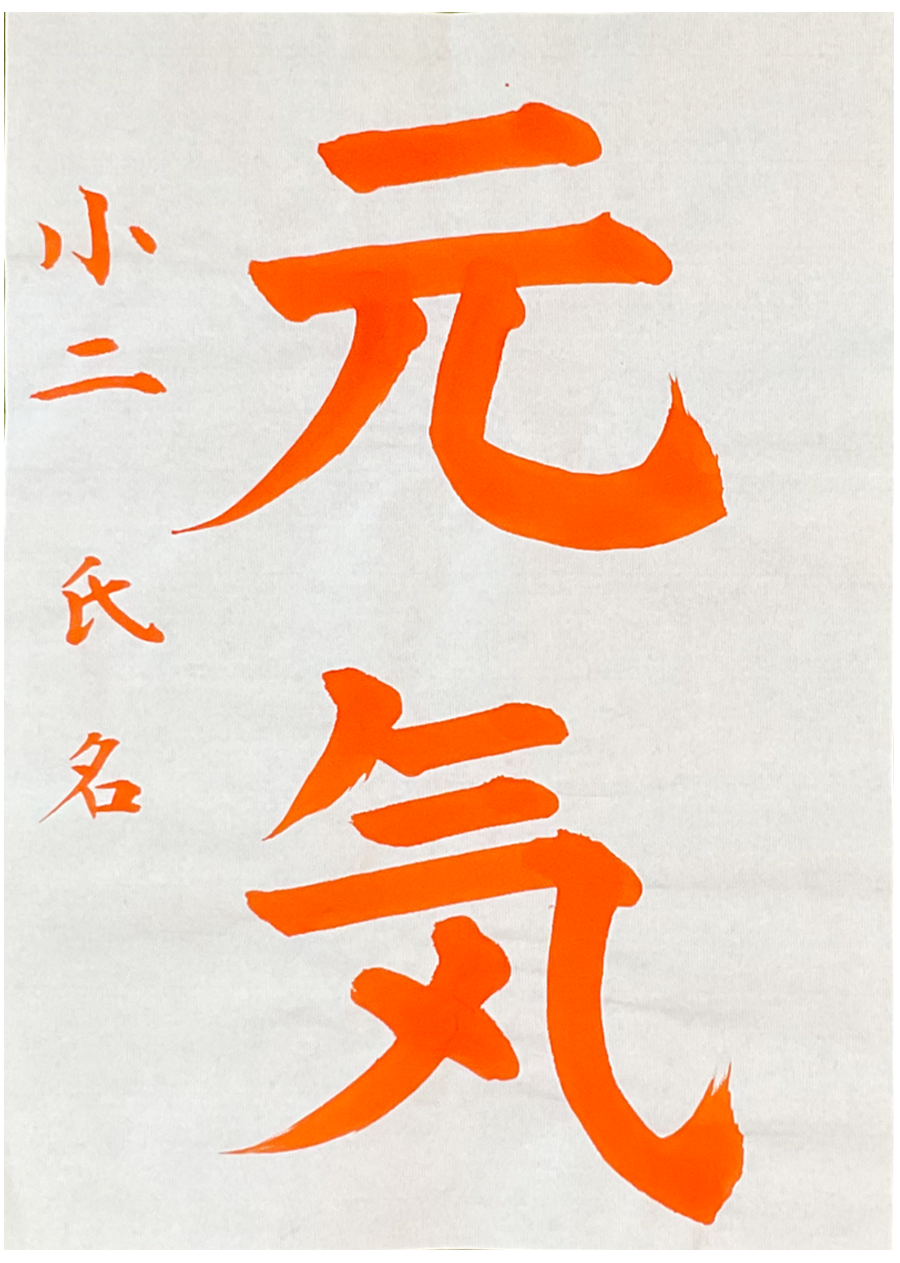 元気
小二 氏名